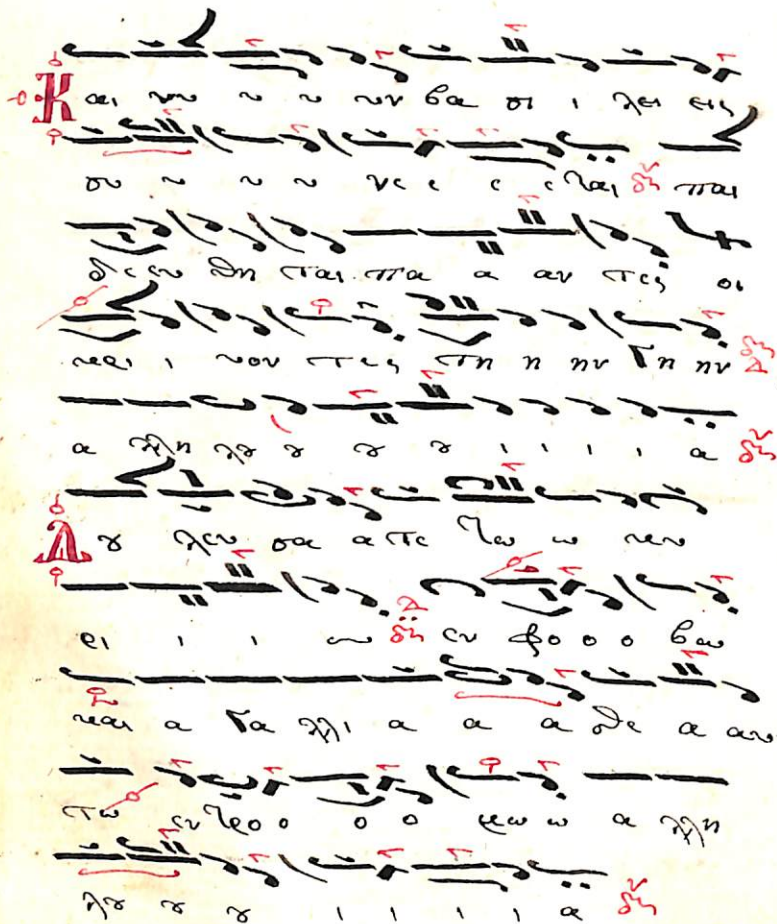 Και νυ υ υ υν βα σι ι λει εις
συ υ υ υ νε ε ε ε ται παι
δεευ θη ται πα α αν τες οι
κρι ι νον τες τη η ην γη ην
α λλη λȣ ȣ ȣ ȣ ι ι ι ι α
Δȣ λευ σα α τε τω ω κυ
ρι ι ι ω εν φο ο ο βω
και α γα λλι α α α σθε α αυ
τω εν τρο ο ο ο μω ω α λλη
λȣ ȣ ȣ ι ι ι ι α